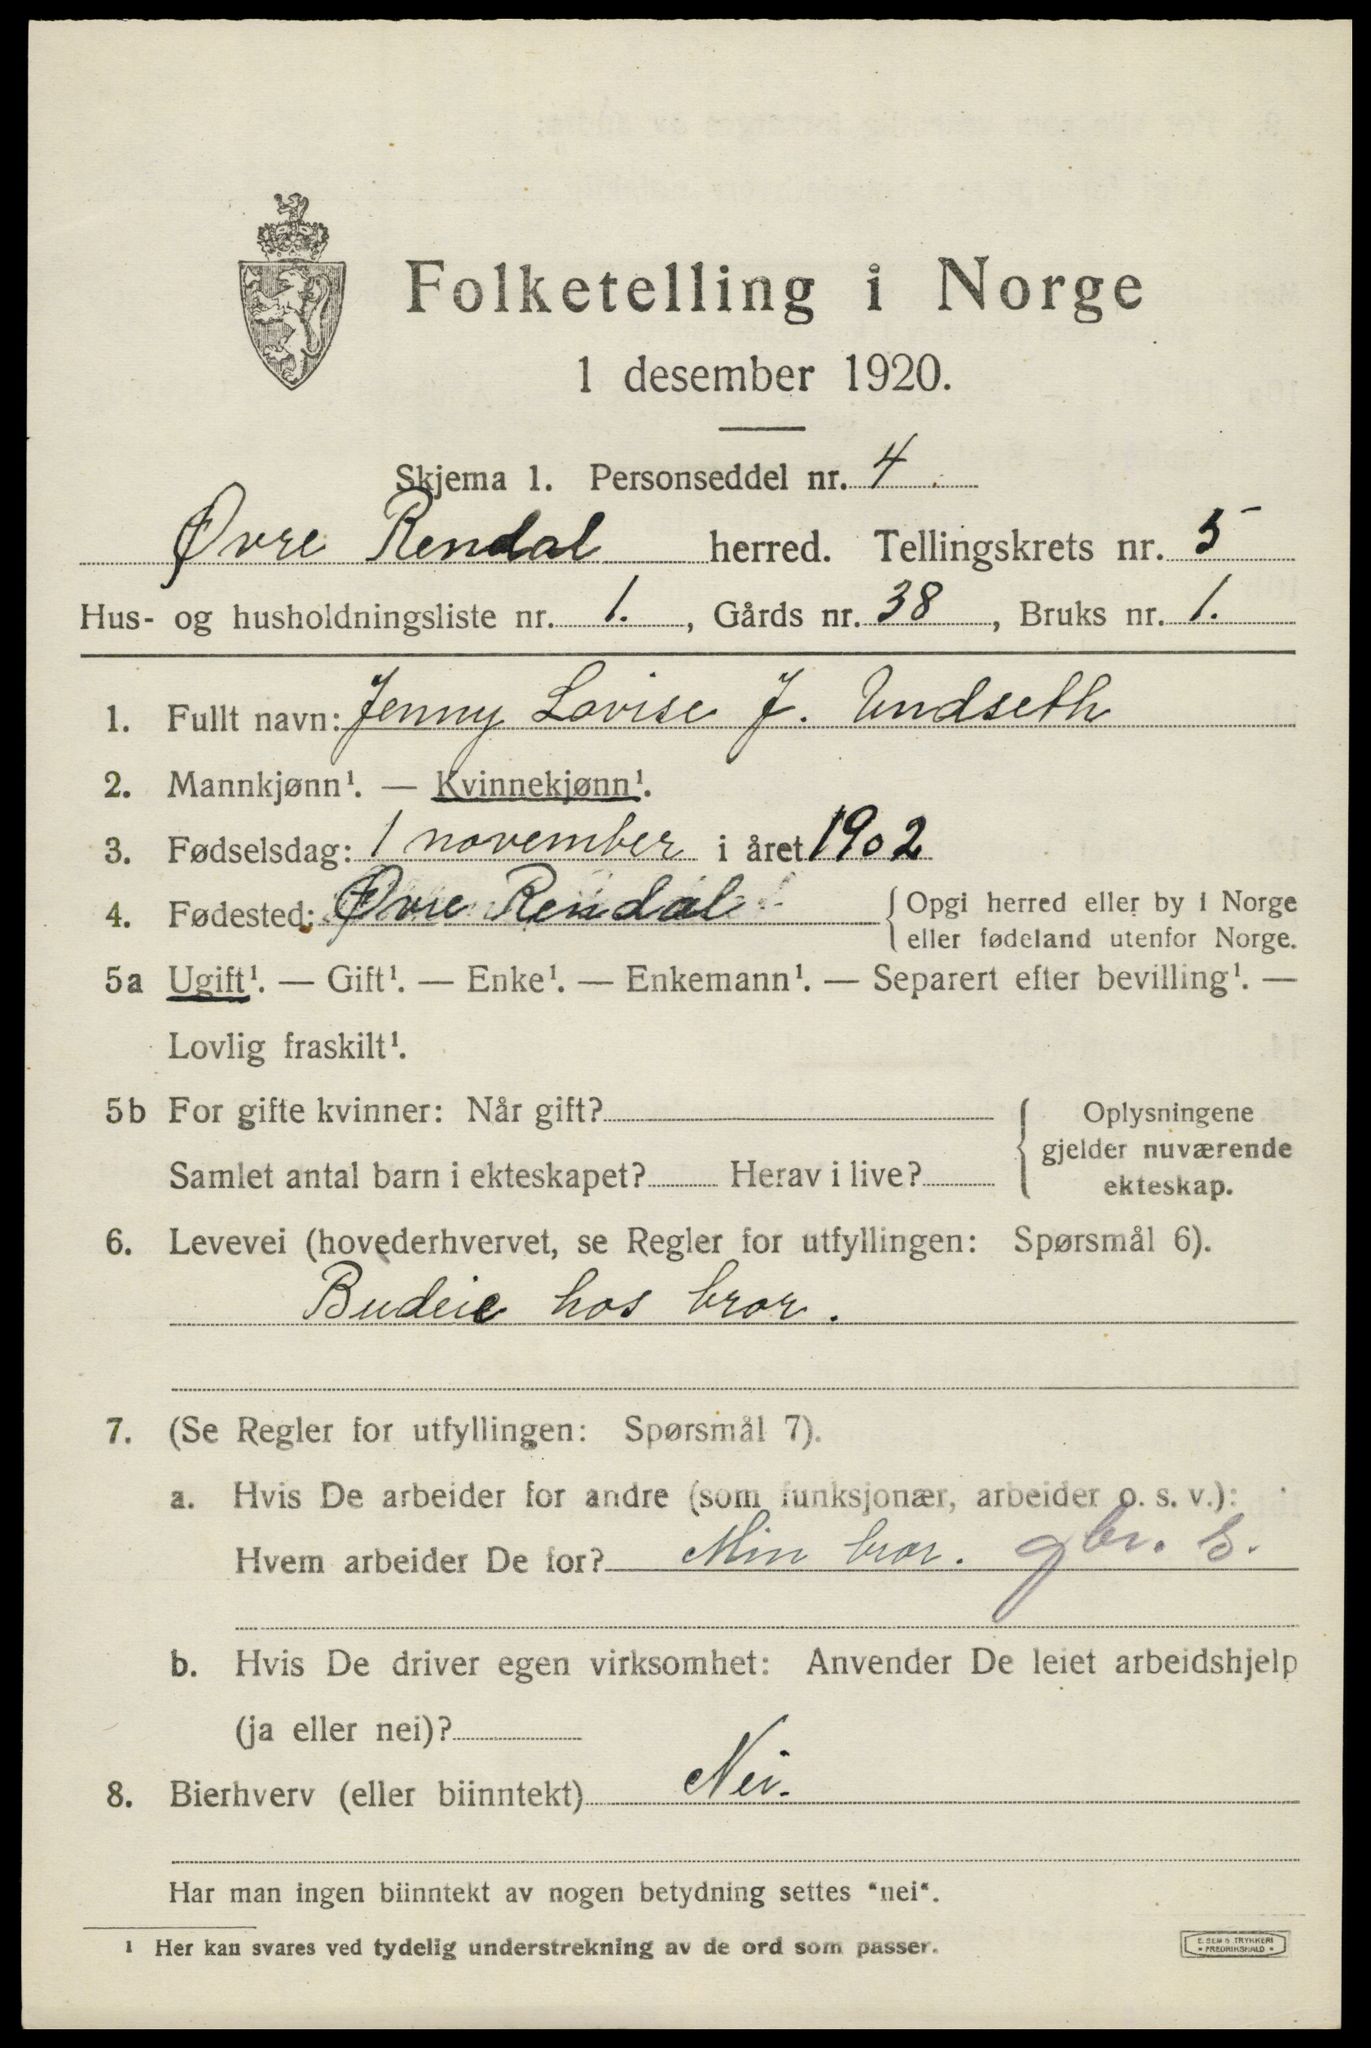 Folketelling i Norge
1 desember 1920.
Skjema 1. Personseddel nr. 4
Øvre Rendal herred. Tellingskrets nr. 5
Hus- og husholdningsliste nr. 1. , Gårds nr. 38 , Bruks nr. 1.
1. Fullt navn: Jenny Lovise J. Undseth
2. Mannkjønn¹. — Kvinnekjønn¹.
3. Fødselsdag: 1 november i året 1902
4. Fødested: Øvre Rendal { Opgi herred eller by i Norge
eller fødeland utenfor Norge.
5a Ugift¹. — Gift¹. — Enke¹. — Enkemann¹. — Separert efter bevilling¹. —
Lovlig fraskilt¹.
5b For gifte kvinner: Når gift? { Oplysningene
gjelder nuværende
Samlet antal barn i ekteskapet? Herav i live? ekteskap.
6. Levevei (hovederhvervet, se Regler for utfyllingen: Spørsmål 6).
Budeie hos bror.
7. (Se Regler for utfyllingen: Spørsmål 7).
a. Hvis De arbeider for andre (som funksjonær, arbeider o. s. v.):
Hvem arbeider De for? Min bror. gbr. s.
b. Hvis De driver egen virksomhet: Anvender De leiet arbeidshjelp
(ja eller nei)?
8. Bierhverv (eller biinntekt) Nei.
Har man ingen biinntekt av nogen betydning settes "nei".
¹ Her kan svares ved tydelig understrekning av de ord som passer.
E. SEM S TRYKKERI
* FREDRIKSHALD *